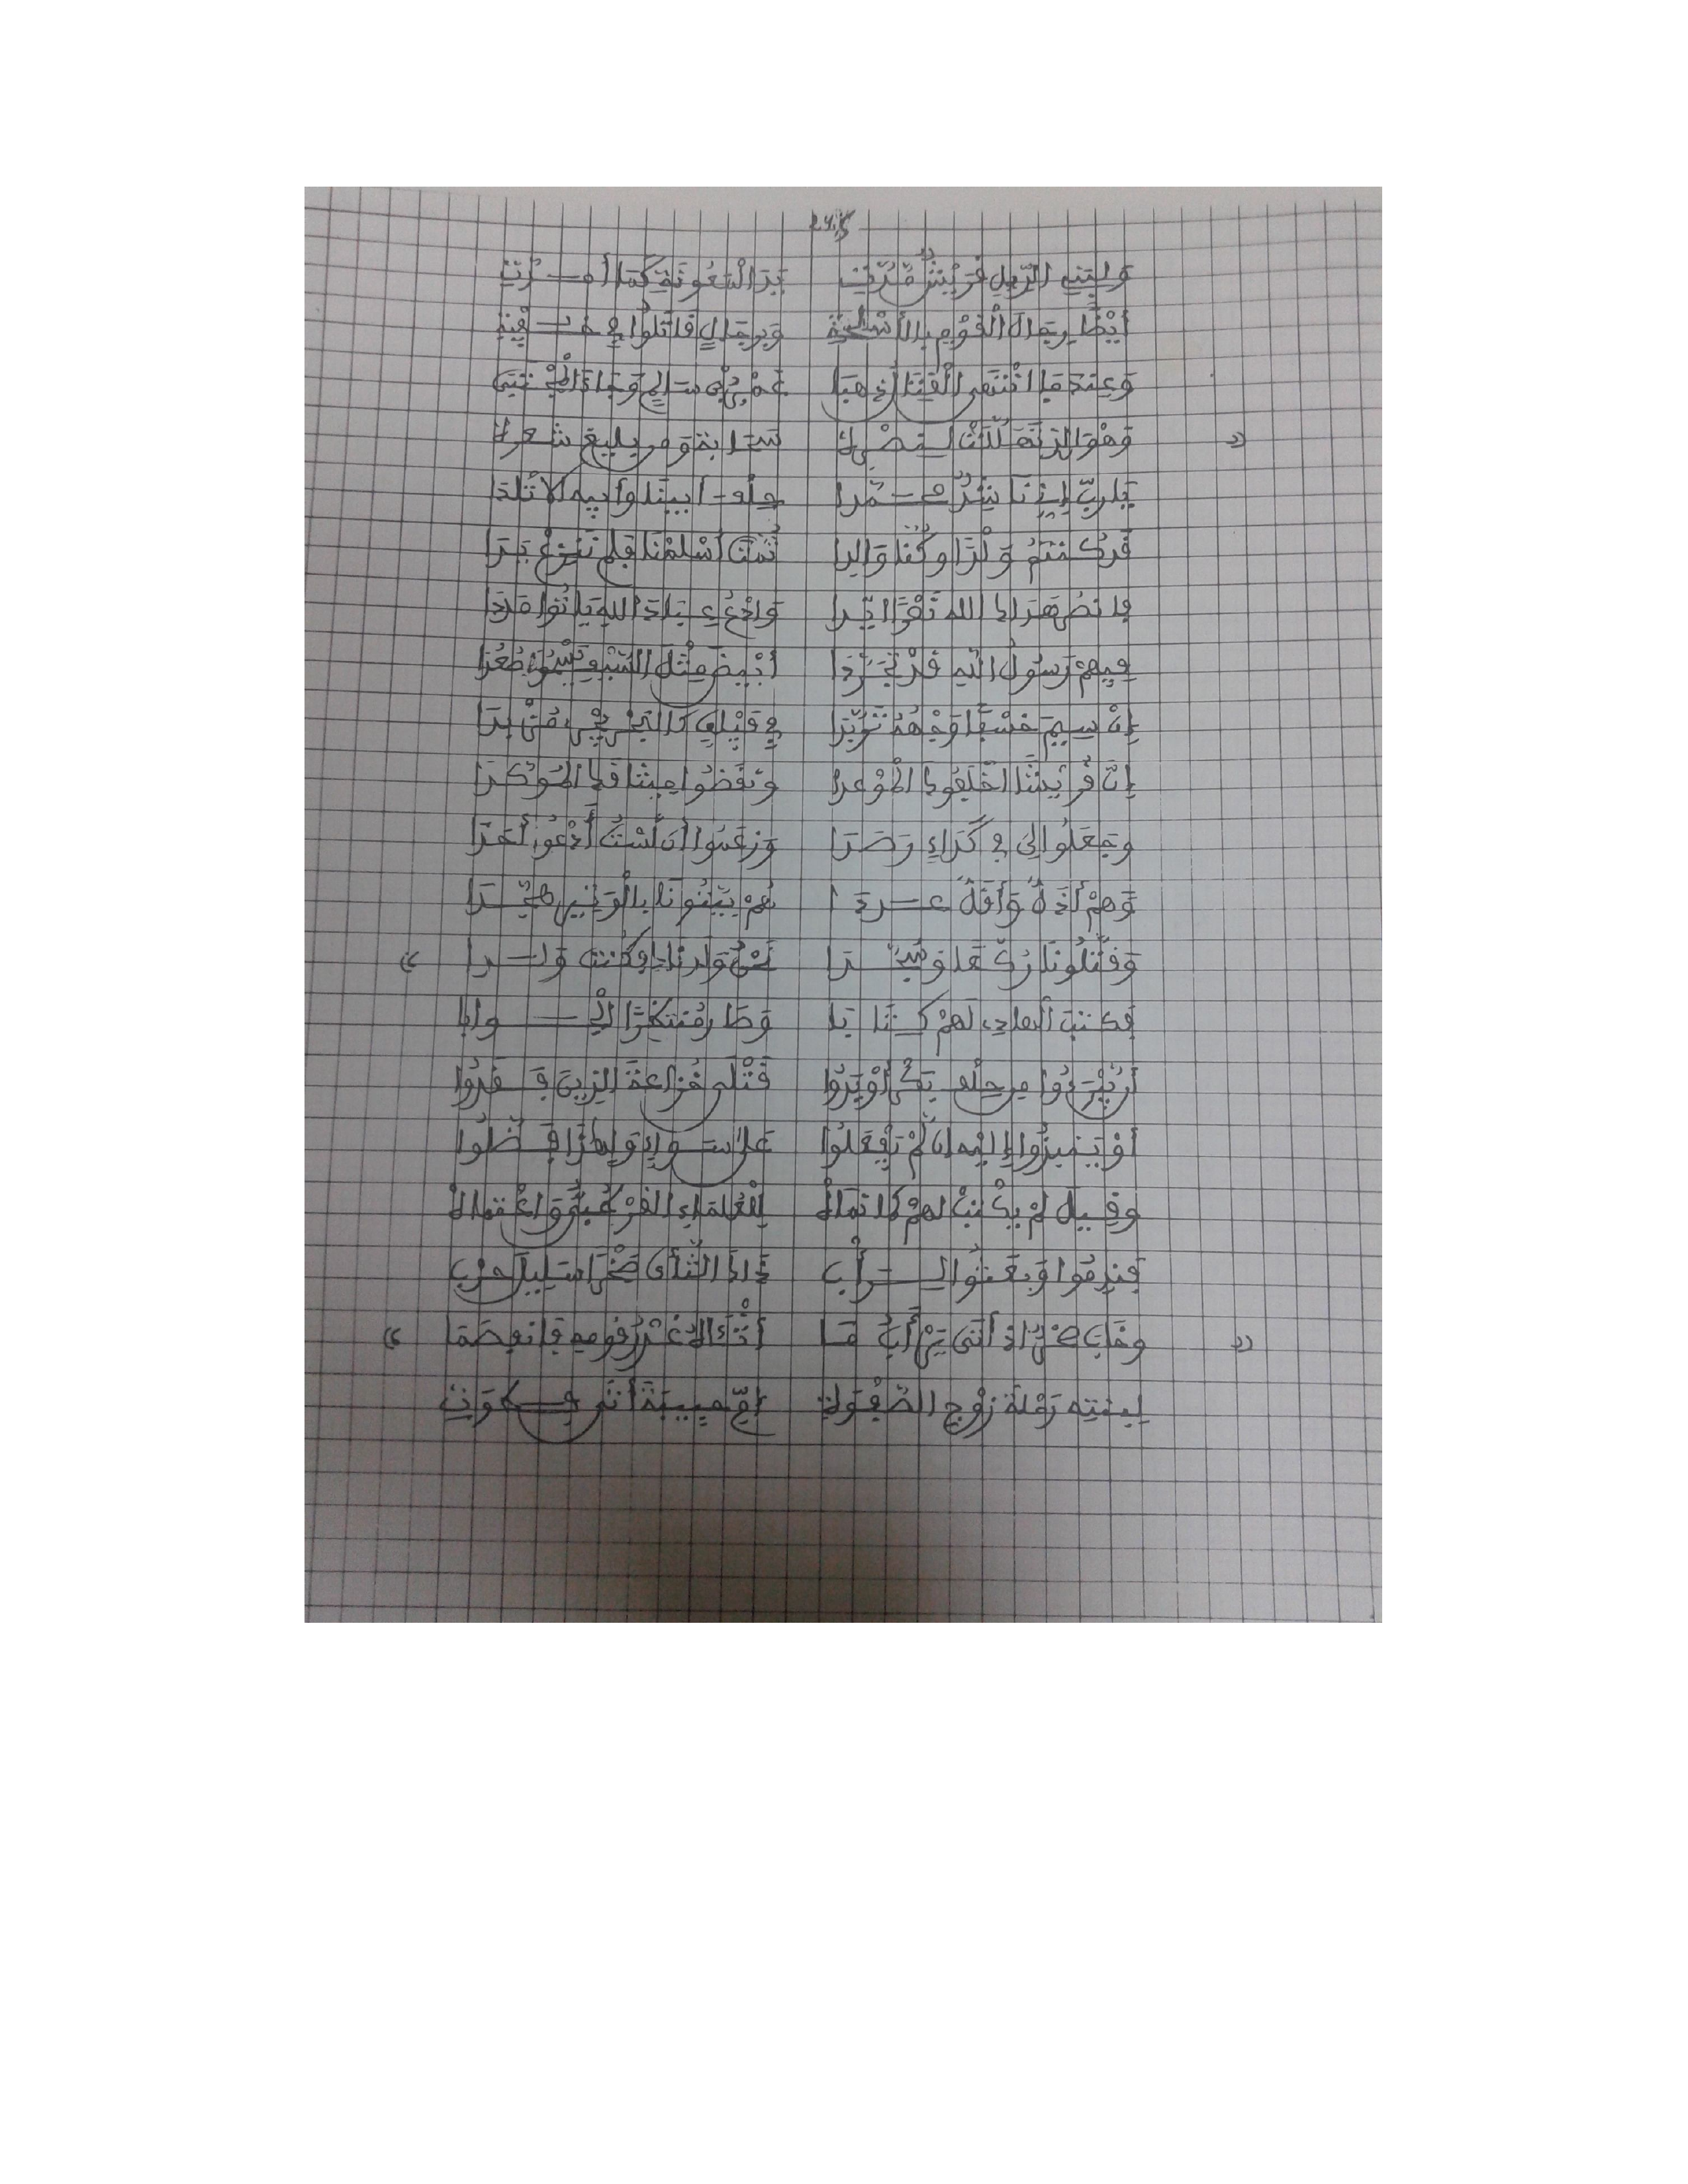 ولبني الديل قريش مدت يد المعونة كما أمدت
أيضا رجال القوم بالأسلحة وبرجال قاتلوا في خفية
وعندما انتهى القتال ذهبا عمرو بن سالم وجاء المجتبى
وهو الذي سحابة ومن بليغ شعره
يا رب إني ناشد محمدا حلف أبينا وأبيه الأتلدا
قد كنتم ولدا وكنا والدا ثمت أسلمنا فلم ننزع يدا
فانصر هداك الله وادع عباد الله ياتوا مددا
فيهم رسول الله قد تجردا أبيض مثل السيف يسموا صعدا
إن سيم خسفا وجهه تربدا في فيلق كالبحر يجري مزبدا
إن قريشا اخلفوك الموعدا ونقضوا ميثاقك الموكدا
وجعلوا لي في كداء رصدا وزعموا أن لست أدعو أحدا
وهم أذل وأقل عددا هم بيتونا بالوتير هجدا
وقتلونا ركعا وسجدا نحن ولدناك فكنت ولدا
فكتب الهادي لهم كتابا منتظرا الجوابا
أن يبرءوا من حلف بكر أو يدوا قتلى خزاعة الذين فقدوا
أو ينبذوا إليه إن لم يفعلوا على سواء ولهذا فضلوا
وقيل لم يكتب لهم للعلماء الغر
فندموا وبعثوا لرأب ذاك الثأى صخرا سليل حرب
وخاب صخر إذ أتى غدر قومه فانفصما
لبنته رملة زوج الصفوة أم حبيبة أتى